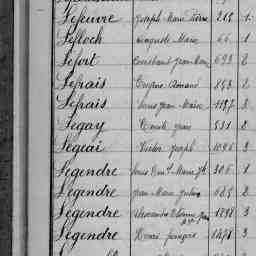 Lefeuvre Joseph Marie Pierre 215 1
Lefloch Auguste Marie 66 1
Lefort Constant Jean Marie 693 2
Lefrais Eugène Armand 853 2
Lefrais Louis Jean Marie 1197 3
Legay Emile Jean 531 2
Legeai Victor Joseph 1095 3
Legendre Louis 306 1
Legendre Jean Marie Julien 685 2
Legendre Alexandre 1298 3
Legendre Henri François 1471 3